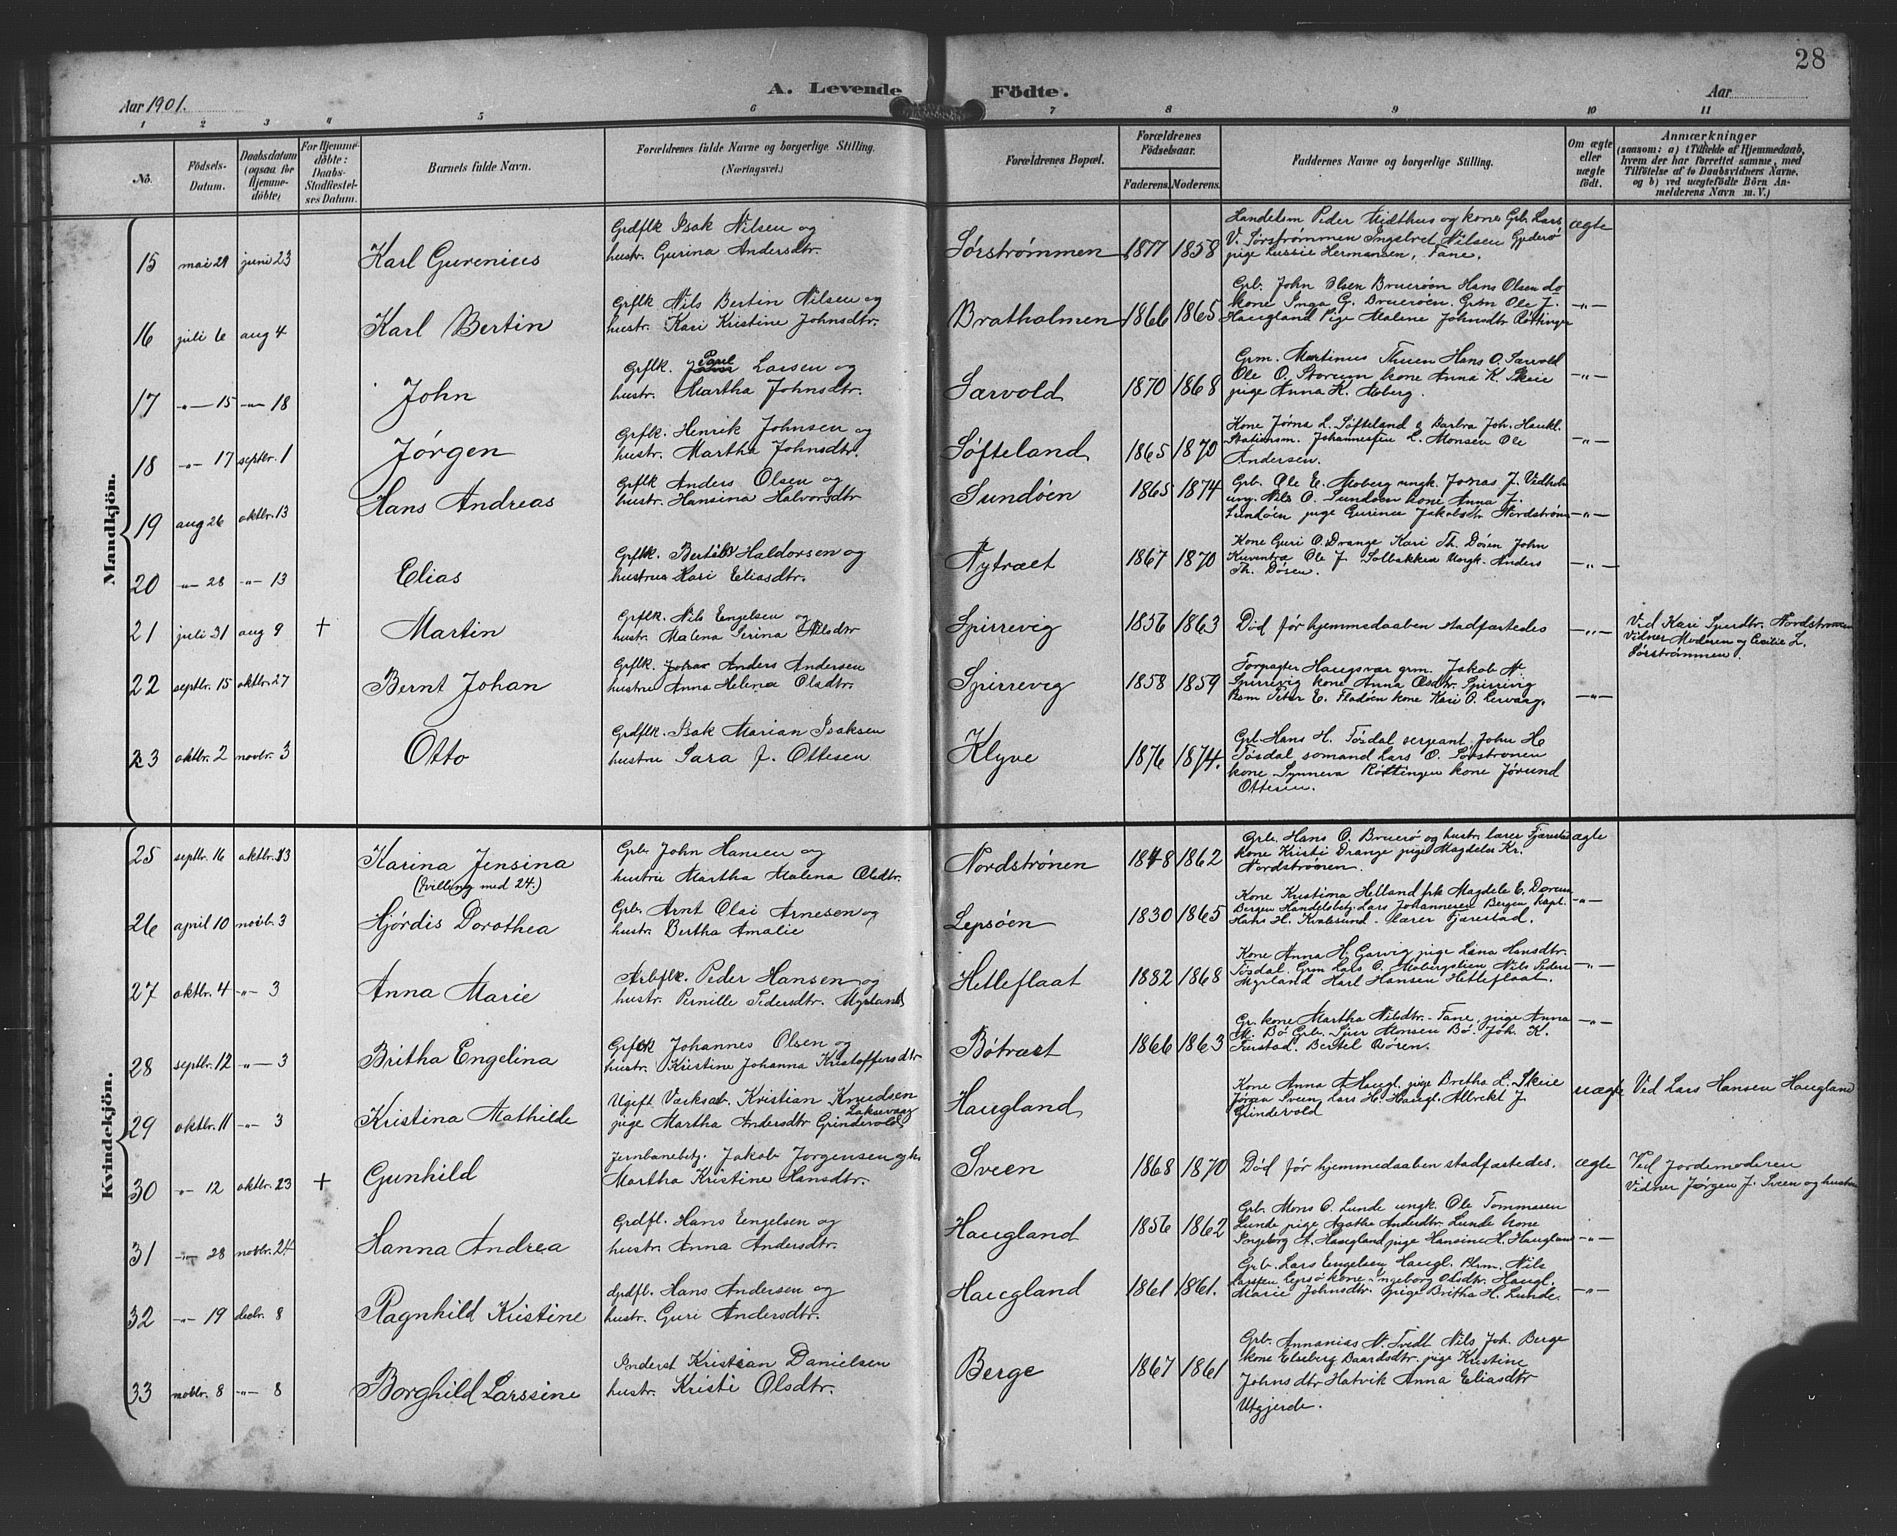 28
Aar 1901.
A. Levende Födte.
Aar
1 2 3 4 5 6 7 8 9 10 11
No.
Födsels-Datum.
Daabsdatum (ogsaa for Hjemmedöbte)
For Hjemmedöbte: Daabs-Stadfæstelses Datum.
Barnets fulde Navn.
Forældrenes fulde Navne og borgerlige Stilling.
(Næringsvei.)
Forældrenes Bopæl.
Forældrenes Födselsaar.
Faderens. Moderens.
Faddernes Navne og borgerlige Stilling.
Om ægte eller uægte födt.
Anmærkninger
(saasom: a) i Tilfælde af Hjemmedaab, hvem der har forrettet samme, med Tilföielse af to Daabsvidners Navne, og b) ved uægtefödte Börn Anmelderens Navn m. V.)
Mandkjön.
15 mai 29 juni 23 Karl Gurenius
Grdflk Isak Nilsen og
hustr. Gurina Andersdtr.
Sørstrømmen 1877 1858
Handelsm Peder Midthus og kone Grb. Lars
V. Sørstrømmen Ingebret Nilsen
pige Lussie Hermansen, Fane.
ægte
16 juli 6 aug 4 Karl Bertin
Grflk Nils Bertin Nilsen og
hustr. Kari Kristine Johnsdtr.
Bratholmen 1866 1865
Grb. John Olsen Bruerøen Hans Olsen do
kone Inga G. Bruerøen. Grbm Ole J.
Haugland Pige Malene Johnsdtr Røttingen
—"—
17 —"— 15 —"— 18 John
Grflk. Paul Larsen og
hustr. Martha Johnsdtr.
Særvold 1870 1868
Grm. Martinus Thuen Hans O. Særvold
Ole O. Storum kone Anna K. Skeie
pige Anna K. Moberg.
—"—
18 —"— 17 septbr. 1 Jørgen
Grflk. Henrik Johnsen og
hustr. Martha Johnsdtr.
Søfteland 1865 1870
Kone Jørna L. Søfteland & Barbra Joh. Haukl.
Stationsm. L. Monsen Ole
Andersen.
—"—
19 aug 26 oktbr. 13 Hans Andreas
Grflk Anders Olsen og
hustr. Hansina Halvorsdtr
Sundøen 1865 1874
Grb. Ole E. Moberg ungk. Jonas J.
ung. Nils O. Sundøen kone Anna J.
Sundøen pige Gurine Jakobsdtr Nordstrøm
—"—
20 —"— 28 —"— 13 Elias
Grflk. Haldorsen og
hustrue Kari Eliasdtr.
Nytræet 1867 1870
Kone Guri O. Drange Kari Th. Døsen John
Kuventræ Ole J. Solbakken Ungk. Anders
Th. Døsen.
—"—
21 juli 31 aug 9 + Martin
Grflk. Nils Engelsen og
hustr. Malena Serina Nilsdtr
Spirrevig 1856 1863 Död før hjemmedaaben stadfæstedes —"—
Ved Kari Sjurdtr. Nordstrømen
Vidner Moderen og Cecilie L.
Sørstrømmen.
22 septbr. 15 oktbr. 27 Bernt Johan
Grflk. Anders Andersen
hustru Anna Helena Olsdtr.
Spirrevig 1858 1859
Forpagter Haugsvær grm. Jakob N.
Spirrevig kone Anna Olsdtr. Spirrevig
Peter E. Fladøen kone Kari O. Lervaag.
—"—
23 oktbr. 2 novbr. 3 Otto
Grdflk. Isak Marian Isaksen
hustru Sara J. Ottesen
Klyve 1876 1874.
Grb. Hans H. Tøsdal sergeant John H.
Tøsdal sømand Lars O. Sørstrønen
kone Synneva Røttingen kone Jørund
Ottesen.
Kvindekjön.
25 septbr. 16 oktbr. 13 Karina Jensina
(tvilling med 24.)
Grb John Hansen og
hustru Martha Malena Olsdtr.
Nordstrønen 1848 1862
Grb. Hans O. Bruerø og hustr. lærer Fjærestad
kone Kristi Drange pige Magdela Kr.
Nordstrønen.
ægte
26 april 10 novb. 3 Hjørdis Dorothea
Grb. Arnt Olai Arnesen og
hustr. Bertha Amalie
Lepsøen 1830 1865
Kone Kristina Helland frk Magdele E.
Bergen Handelsbetj. Lars Johannesen Bergen Kapt.
Hans H. Kvalsund - Lærer Fjærestad.
—"—
27 oktbr. 4 —"— 3 Anna Marie
Arbflk. Peder Hansen og
hustr. Pernille Pedersdtr. Myrland
Hetleflaat 1882 1868
Kone Anna H. Garvig pige Lina Hansdtr.
Tøsdal. Grm Lars O. Mobergslien Nils Peders
Myrland Karl Hansen Hetleflaat.
—"—
28 septbr. 12 —"— 3 Britha Engelina
Grflk Johannes Olsen og
hustr. Kristine Johanna Kristoffersdtr
Bøtræet 1866 1863
Gr. kone Martha Nilsdtr. Fane, pige Anna
M. Bø Grb. Sjur Monsen Bø. Joh. K.
Bertel Røren.
—"—
29 oktbr. 11 —"— 3 Kristina Mathilde
Ugift Værksarb. Kristian Knudsen
Laksevaag
pige Martha Andersdtr Grindevold
Haugland
Kone Anna A Haugl. pige Britha L. Skeie
Jørgen Sveen Lars H. Haugl. Albrekt J.
Grindevold
uægte Ved Lars Hansen Haugland
30 —"— 12 oktbr. 23 + Gunhild
Jernbanebetj. Jakob Jørgensen og h.
Martha Kristine Hansdtr.
Sveen 1868 1870 Død før hjemmedaaben stadfæstedes. ægte
Ved Jordemoderen
Vidner Jørgen J. Sveen og hustru
31 —"— 28 novbr. 24 Hanna Andrea
Grdfl. Hans Engelsen og
hustr. Anna Andersdtr.
Haugland 1856 1862
Grb. Mons O. Lunde ungk. Ole Tommasen
Lunde pige Agatha Anderdtr. Lunde kone
Ingeborg A. Haugland pige Hansine H. Haugland
—"—
32 —"— 19 decbr. 8 Ragnhild Kristine
Grdfl. Hans Andersen og
hustr. Guri Andersdtr.
Haugland 1861 1861.
Grb. Lars Engelsen Haugl. Nils
Larsen Lepsø kone Ingeborg Olsdtr. Haugl.
Marie Johnsdtr. pige Britha H. Lunde.
—"—
33 novbr. 8 —"— 8 Borghild Larssine
Inderst Kristian Danielsen
hustr. Kristi Olsdtr.
Berge 1867 1861
Grb. Annanias N. Tvedt Nils Joh. Berge
kone Elseberg Baardsdtr. pige Kristine
Johnsdtr Hatvik Anna Eliasdtr
Utgjerde.